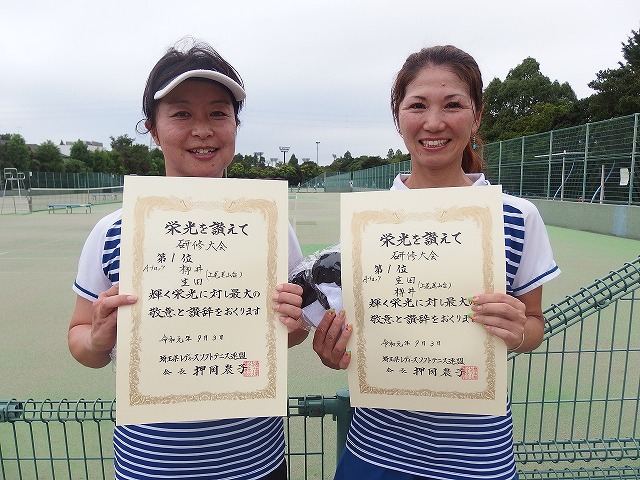 栄光を讃えて
研修大会
第1位
Aブロック 栁井
生田
(上尾原山台)
輝く栄光に対し最大の
敬意と讃辞をおくります
令和元年9月3日
埼玉県レディースソフトテニス連盟
会長 押岡農子
栄光を讃えて
研修大会
第1位
Aブロック 生田
栁井
輝く栄光に対し最大の
敬意と讃辞をおくります
令和元年9月3日
埼玉県レディースソフトテニス連盟
会長 押岡農子